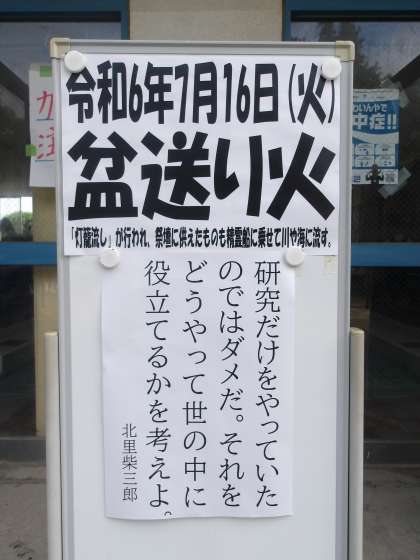 令和6年7月16日(火)
盆送り火
「灯籠流し」が行われ、祭壇に供えたものも精霊船に乗せて川や海に流す。
研究だけをやっていた
のではダメだ。それを
どうやって世の中に
役立てるかを考えよ。
北里柴三郎
中症!!